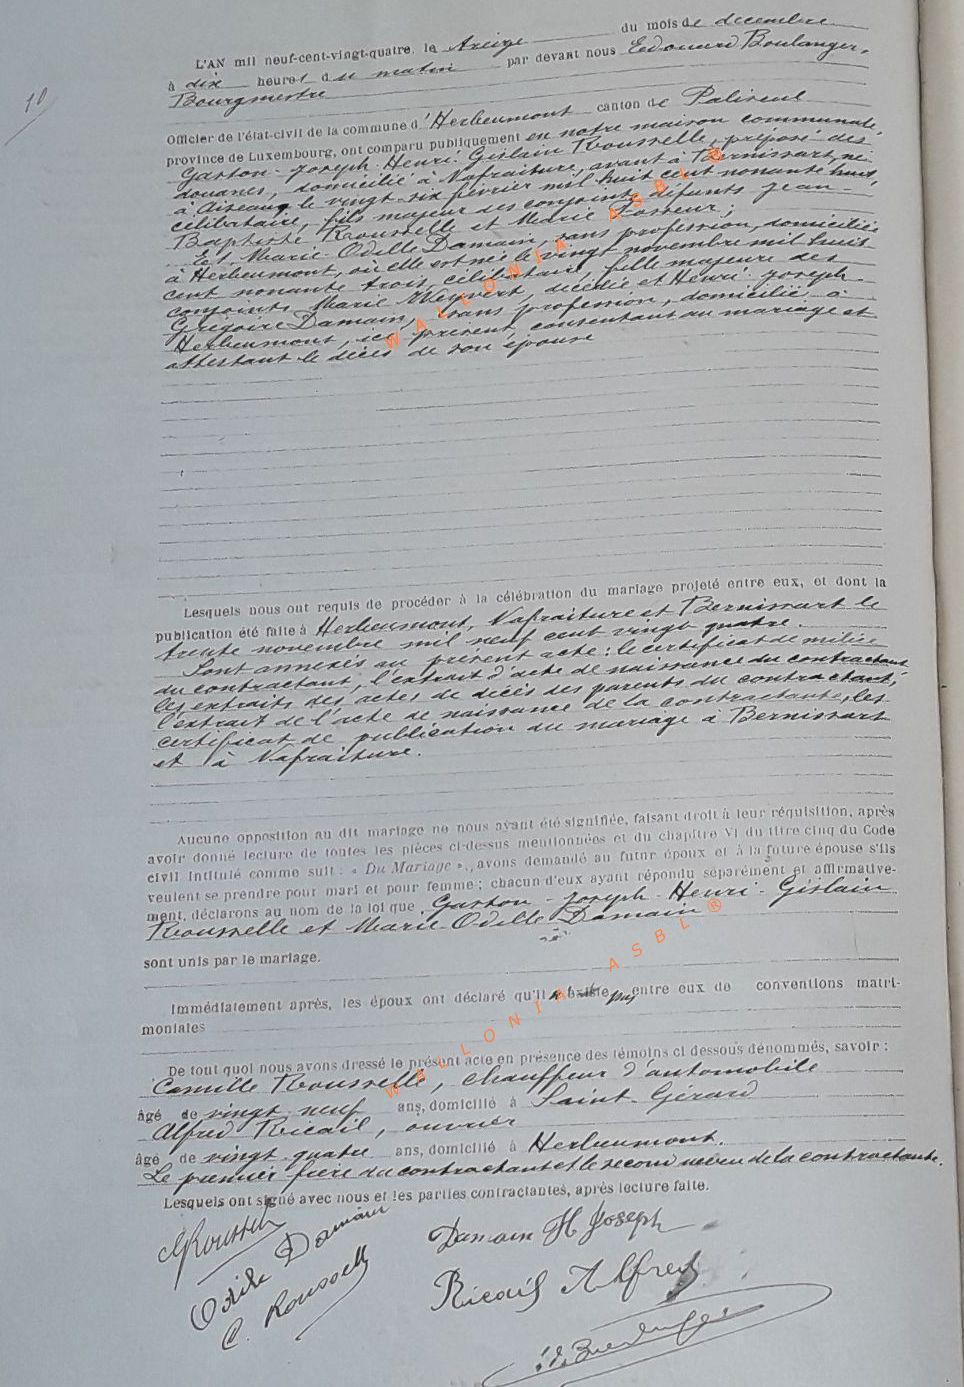 10
L'AN mil neuf-cent-vingt-quatre, le treize du mois de décembre
à dix heures du matin par devant nous Edouard Boulanger,
Bourgmestre
Officier de l'état-civil de la commune d'Herbeumont canton de Paliseul
province de Luxembourg, ont comparu publiquement en notre maison communale,
Gaston-Joseph-Henri-Gislain Rousselle, préposé des
douanes, domicilié à Nafraiture, avant à Bernissart, né
à Aiseau, le vingt-six février mil huit cent nonante huit,
célibataire, fils majeur des conjoints défunts Jean-
Baptiste Rousselle et Marie Josseur;
Et Marie-Odille Damain, sans profession, domiciliée
à Herbeumont, où elle est née le vingt novembre mil huit
cent nonante trois, célibataire, fille majeure des
conjoints Marie décédée et Henri-Joseph
Grégoire Damain, sans profession, domicilié à
Herbeumont, ici présent, consentant au mariage et
attestant le décès de son épouse
Lesquels nous ont requis de procéder à la célébration du mariage projeté entre eux, et dont la
publication été faite à Herbeumont, Nafraiture et Bernissart le
trente novembre mil neuf cent vingt quatre.
Sont annexés au présent acte: le certificat de milice
du contractant, l'extrait d'acte de naissance du contractant
les extraits des actes de décès des parents du contractant,
l'extrait de l'acte de naissance de la contractante, les
certificat de publication du mariage à Bernissart
et à Nafraiture.
Aucune opposition au dit mariage ne nous ayant été signifiée, faisant droit à leur réquisition, après
avoir donné lecture de toutes les pièces ci-dessus mentionnées et du chapitre VI du titre cinq du Code
civil intitulé comme suit: « Du Mariage », avons demandé au futur époux et à la future épouse s'ils
veulent se prendre pour mari et pour femme; chacun d'eux ayant répondu séparément et affirmative-
ment, déclarons au nom de la loi que Gaston-Joseph-Henri-Gislain
Rousselle et Marie-Odille Damain
sont unis par le mariage.
Immédiatement après, les époux ont déclaré qu'il n'existe pas entre eux de conventions matri-
moniales
De tout quoi nous avons dressé le présent acte en présence des témoins ci dessous dénommés, savoir:
Camille Rousselle, chauffeur d'automobile
âgé de vingt neuf ans, domicilié à Saint-Gérard
Alfred Ricail, ouvrier
âgé de vingt quatre ans, domicilié à Herbeumont.
Le premier frère du contractant et le second neveu de la contractante.
Lesquels ont signé avec nous et les parties contractantes, après lecture faite.
G Roussel
Odile Damain
C. Roussell
Damain H Joseph
Ricail Alfred
WALLONIA ASBL®
WALLONIA ASBL®